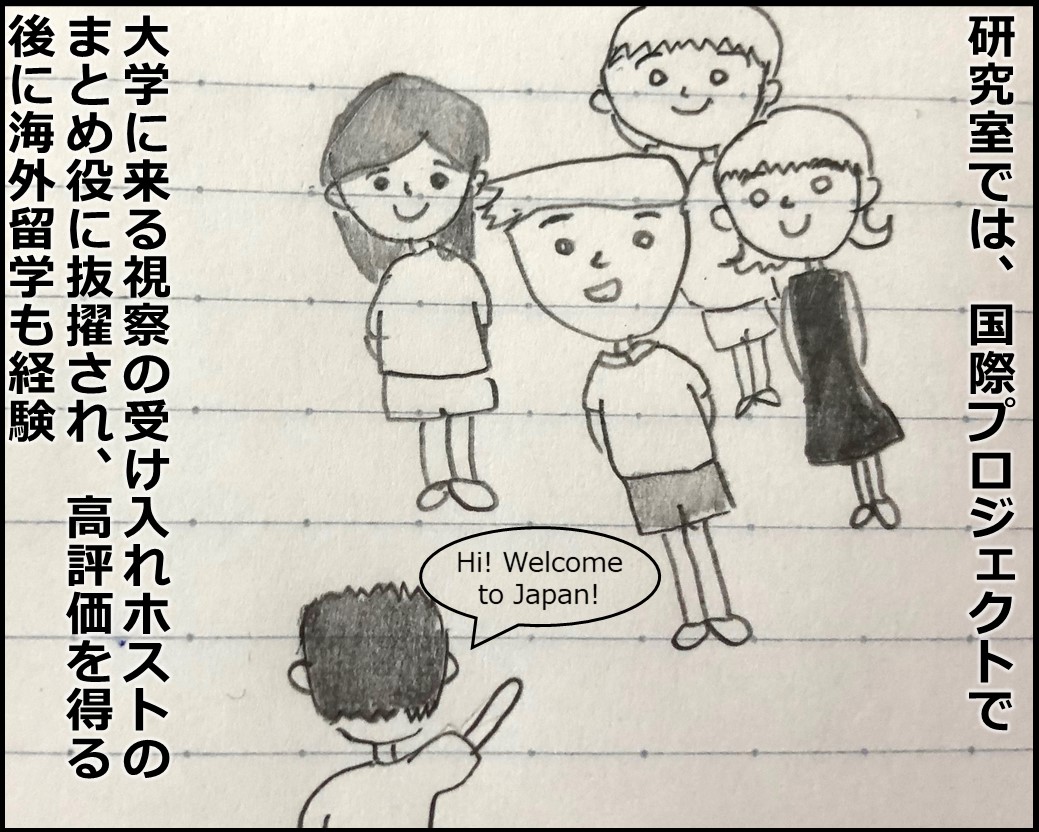 研究室では、国際プロジェクトで
Hi! Welcome
to Japan!
大学に来る視察の受け入れホストの
まとめ役に抜擢され、高評価を得る
後に海外留学も経験